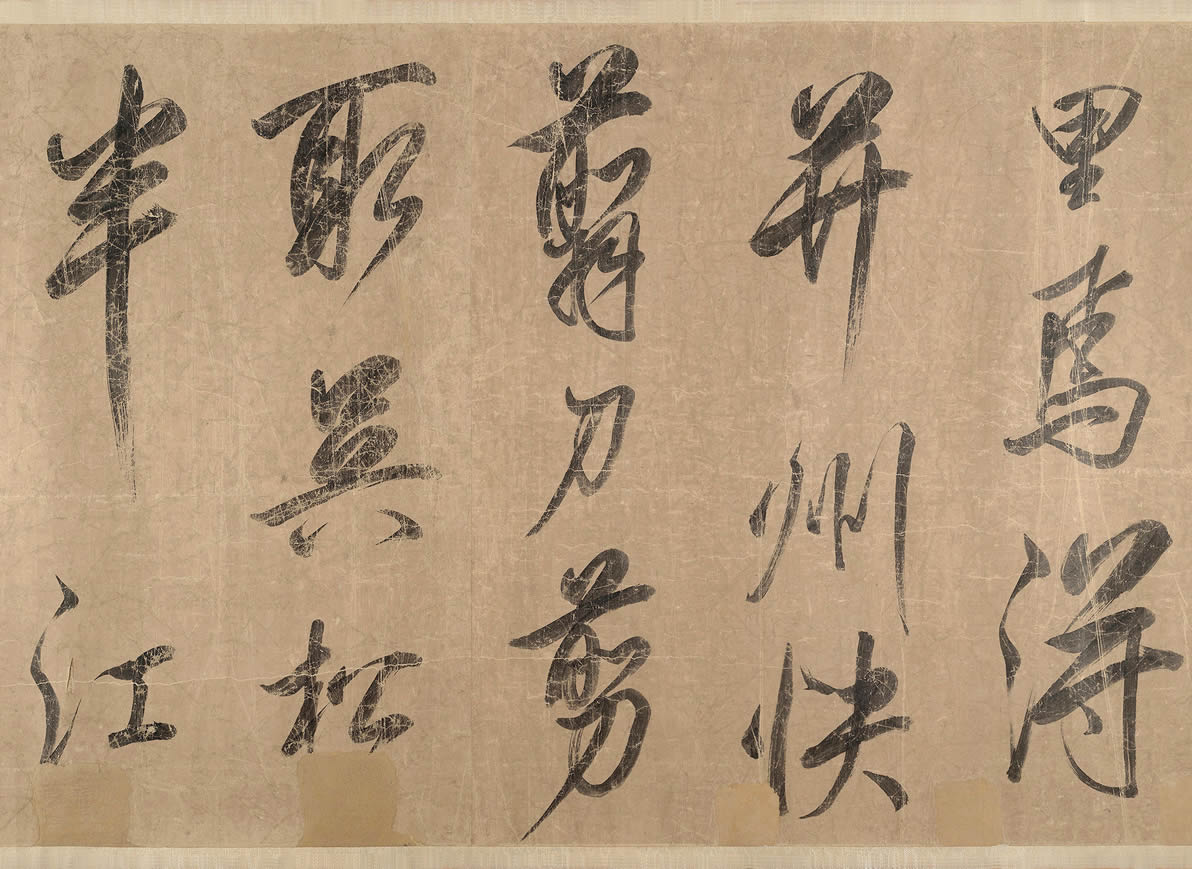 里焉得
并州快
翦刀剪
取吳松
半江